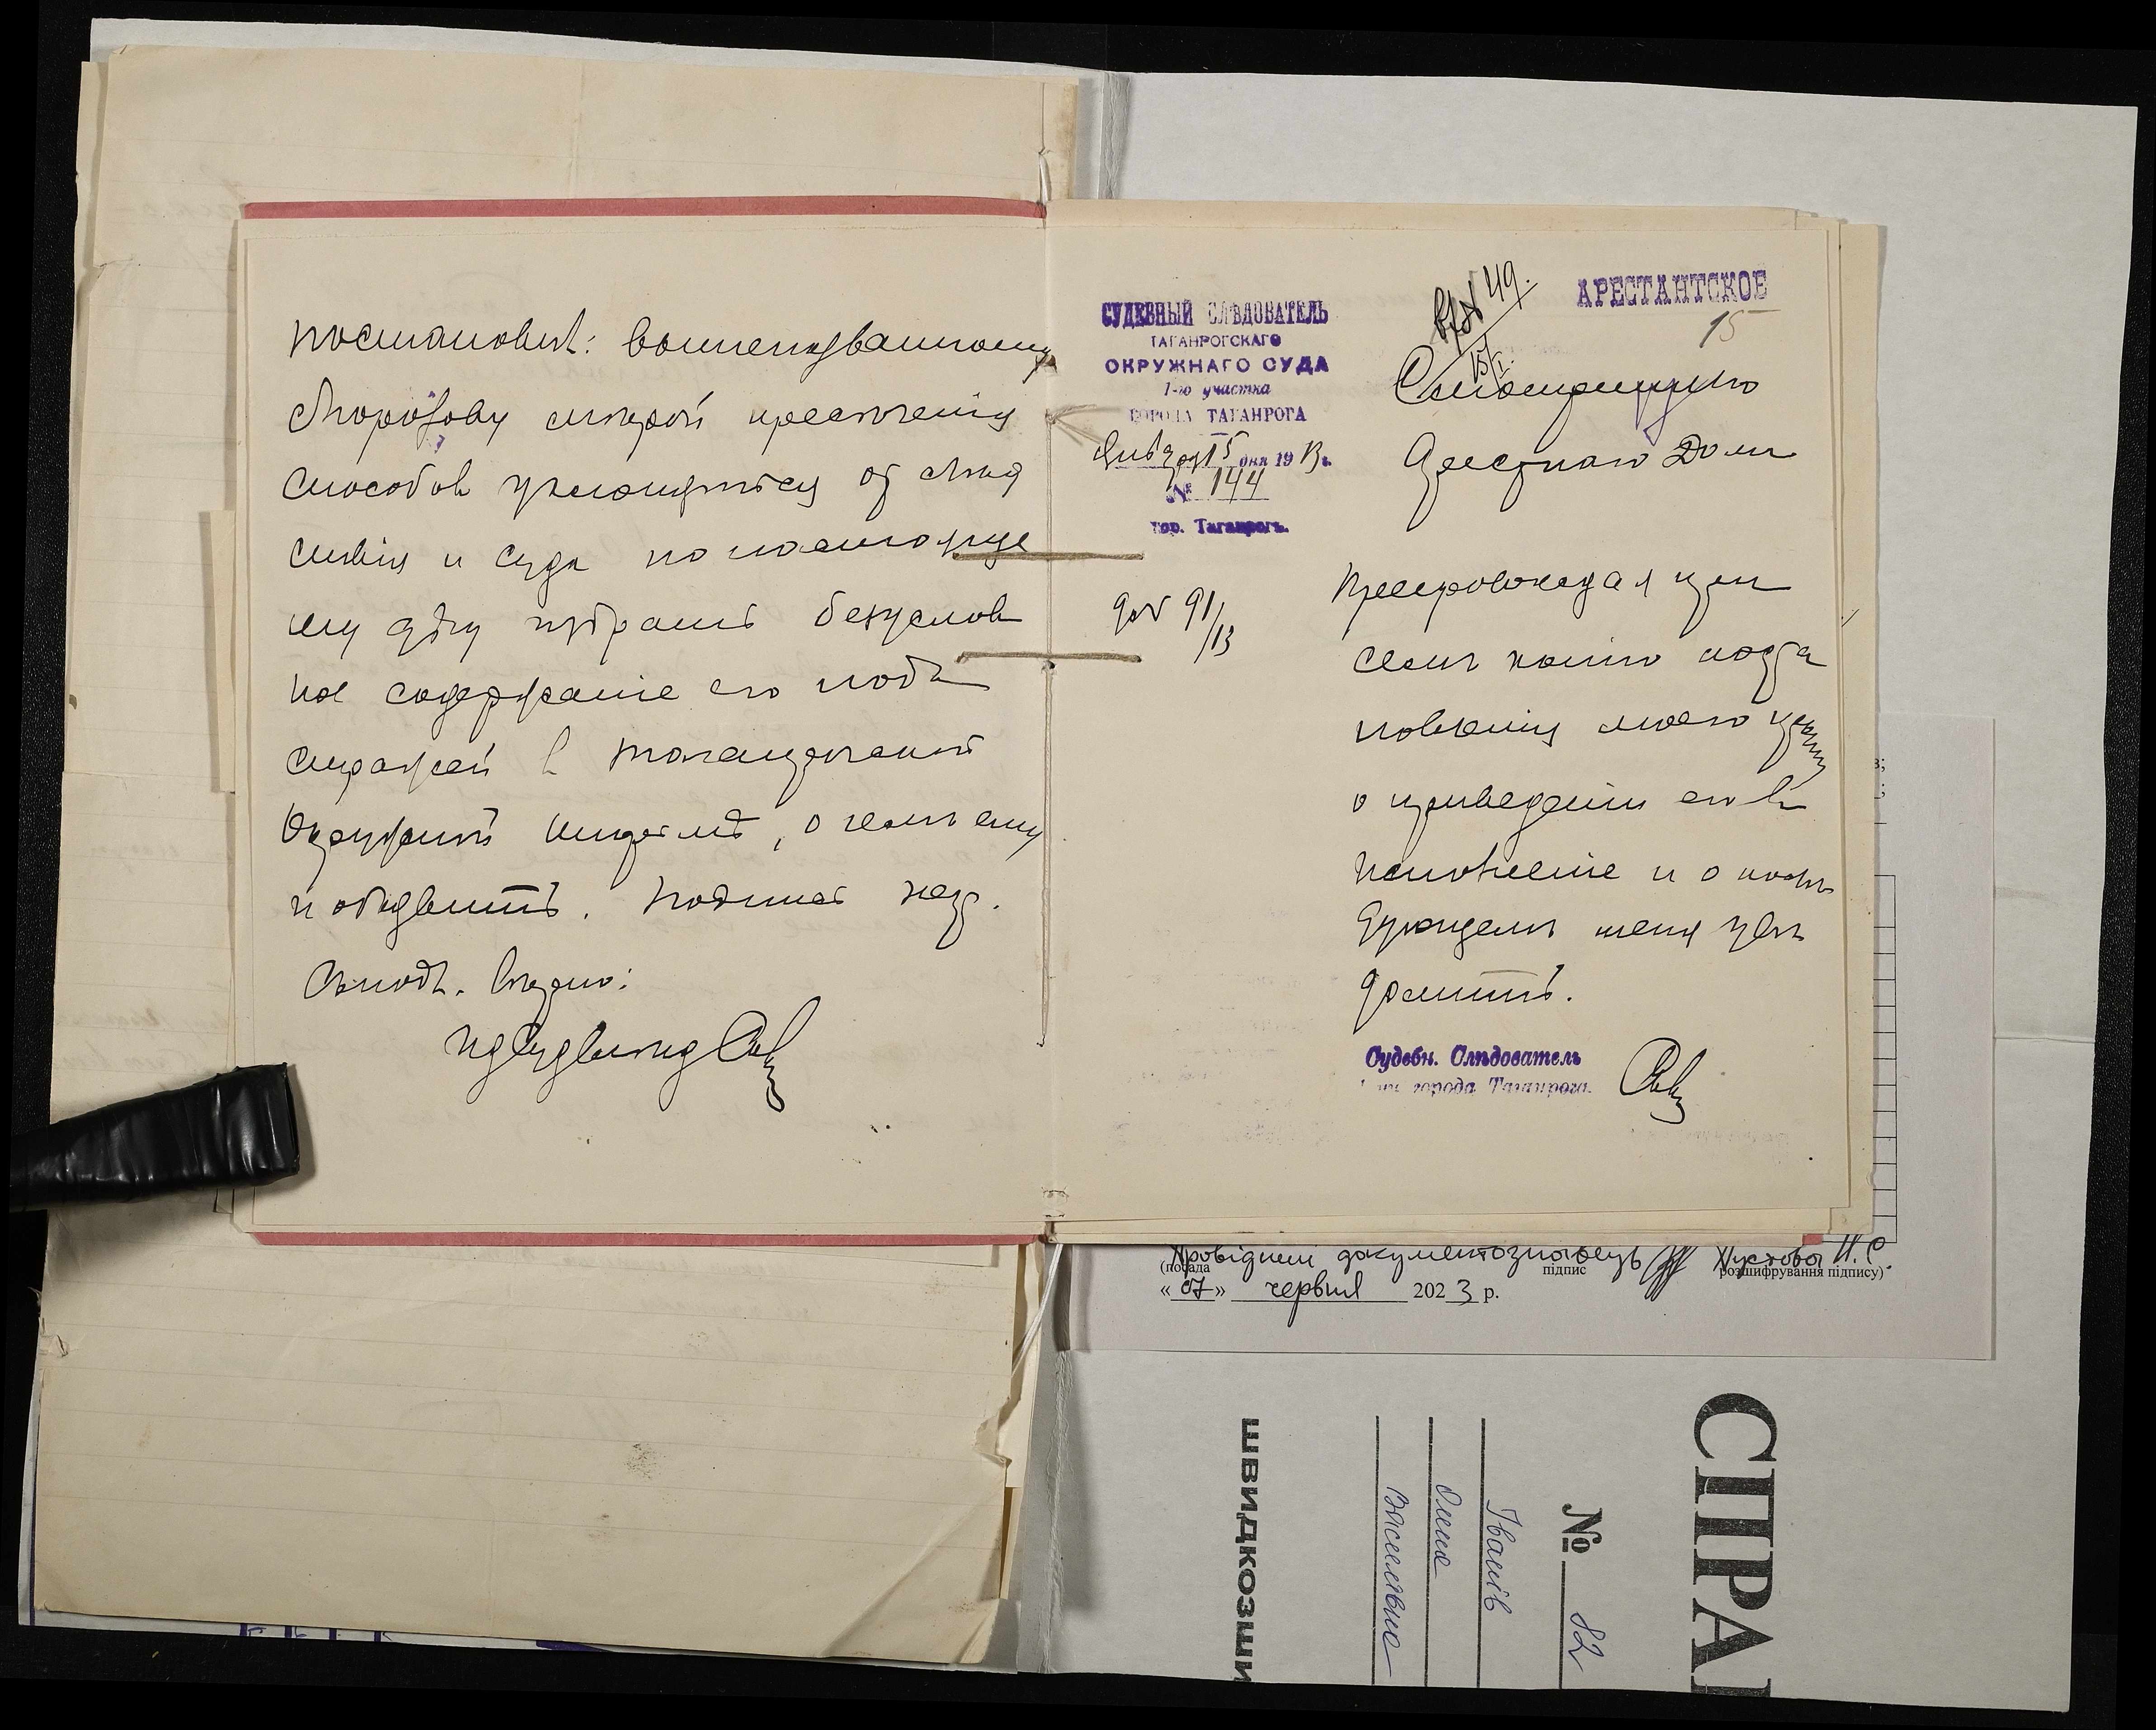 постановилъ: вышеназванному
Морозову мѣрой пресѣченія
способовъ уклоняться отъ слѣд
ствія и суда по настояще
му дѣлу избрать безуслов
ное содержаніе его подъ
стражей в Таганрогской
Окружной тюрьмѣ, о чемъ ему
и объявить. Подлинное за над.
подп. Вѣрно:
СУДЕБНЫЙ СЛѢДОВАТЕЛЬ
ТАГАНРОГСКАГО
ОКРУЖНАГО СУДА
1-го участка
ГОРОДА ТАГАНРОГА
Января 15 дня 1913 г.
№ 144
гор. Таганрогъ.
49.
15/I
АРЕСТАНТСКОЕ
15
Смотрителю
Арестнаго Дома
91/13
Препровождая при
семъ копію поста
новленія моего прошу
о приведеніи его въ
исполненіе и о послѣ
дующемъ меня увѣ
домить.
Судебн. Слѣдователь
города Таганрога.
Провідний документознавець Пустова Н.С.
(посада підпис розшифрування підпису)
« 07 » червня 2023 р.
СПРА
№ 82
Іванів
Олена
Василівна
швидкозши